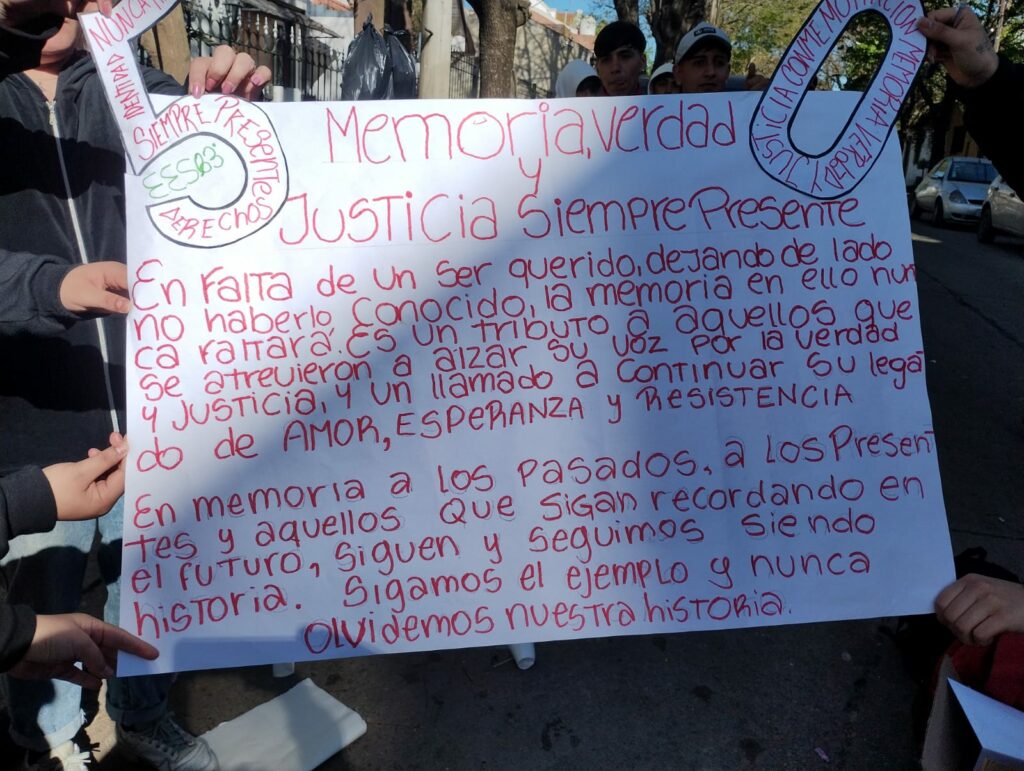 NUNCA
IDENTIDAD
SIEMPRE PRESENTES
EESB3
DERECHOS
JUSTICIA CONMEMORACION MEMORIA VERDAD Y
Memoria, verdad
y
JUSTICIA Siempre Presente
En Falta de un ser querido, dejando de lado
no haberlo conocido, la memoria en ello nun
ca faltará. Es un tributo a aquellos que
se atrevieron a alzar su voz por la verdad
y JUSTICIA, y un llamado a continuar su lega
do de AMOR, ESPERANZA y RESISTENCIA
En memoria a los pasados, a los Presen
tes y aquellos que sigan recordando en
el futuro, siguen y seguimos siendo
historia. Sigamos el ejemplo y nunca
olvidemos nuestra historia.